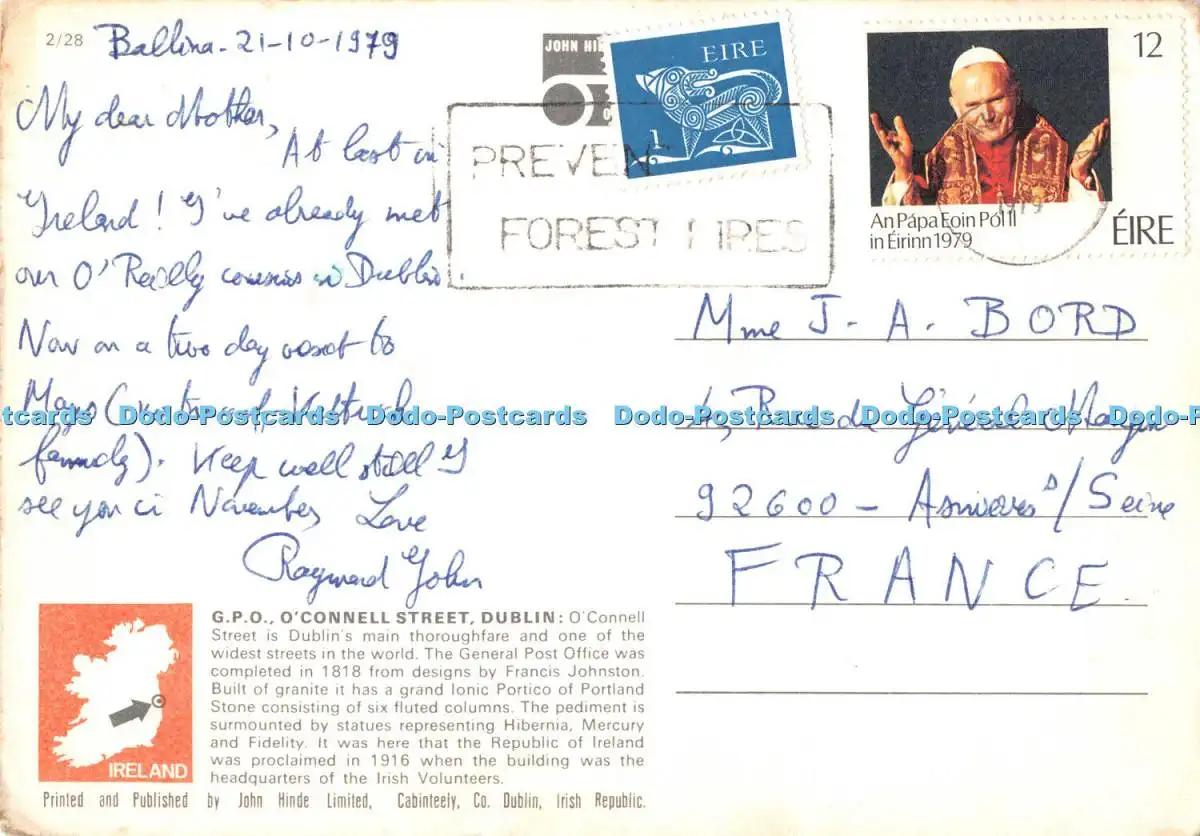 2/28 Ballina - 21-10-1979
My dear Mother,
At last in
Ireland! I've already met
our O'Reilly cousins in Dublin.
Now on a two day visit to
Mayo
family). Keep well still I
see you in November Love
Raymond John
JOHN HI
EIRE
1
PREVEN
FOREST FIRES
12
1979
An Pápa Eoin Pól II
in Éirinn 1979
ÉIRE
Mme J. A. BORD
4, Rue du Général Mangin
92600 - Asnières s/Seine
FRANCE.
Dodo-Postcards Dodo-Postcards Dodo-Postcards Dodo-Postcards
G.P.O., O'CONNELL STREET, DUBLIN: O'Connell
Street is Dublin's main thoroughfare and one of the
widest streets in the world. The General Post Office was
completed in 1818 from designs by Francis Johnston.
Built of granite it has a grand Ionic Portico of Portland
Stone consisting of six fluted columns. The pediment is
surmounted by statues representing Hibernia, Mercury
and Fidelity. It was here that the Republic of Ireland
was proclaimed in 1916 when the building was the
headquarters of the Irish Volunteers.
IRELAND
Printed and Published by John Hinde Limited, Cabinteely, Co. Dublin, Irish Republic.